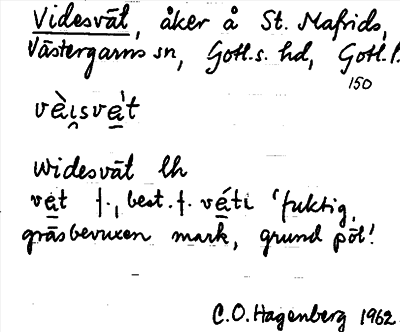 Videsvät, åker å St. Mafrids,
Västergarns sn, Gotl. s. hd, Gotl. l.
150
vὲi̯svὲ̠t
Widesvät lh
vä̠t f., best. f. vä̠́ti ‘fuktig,
gräsbevuxen mark, grund pöl’.
C.O. Hagenberg 1962